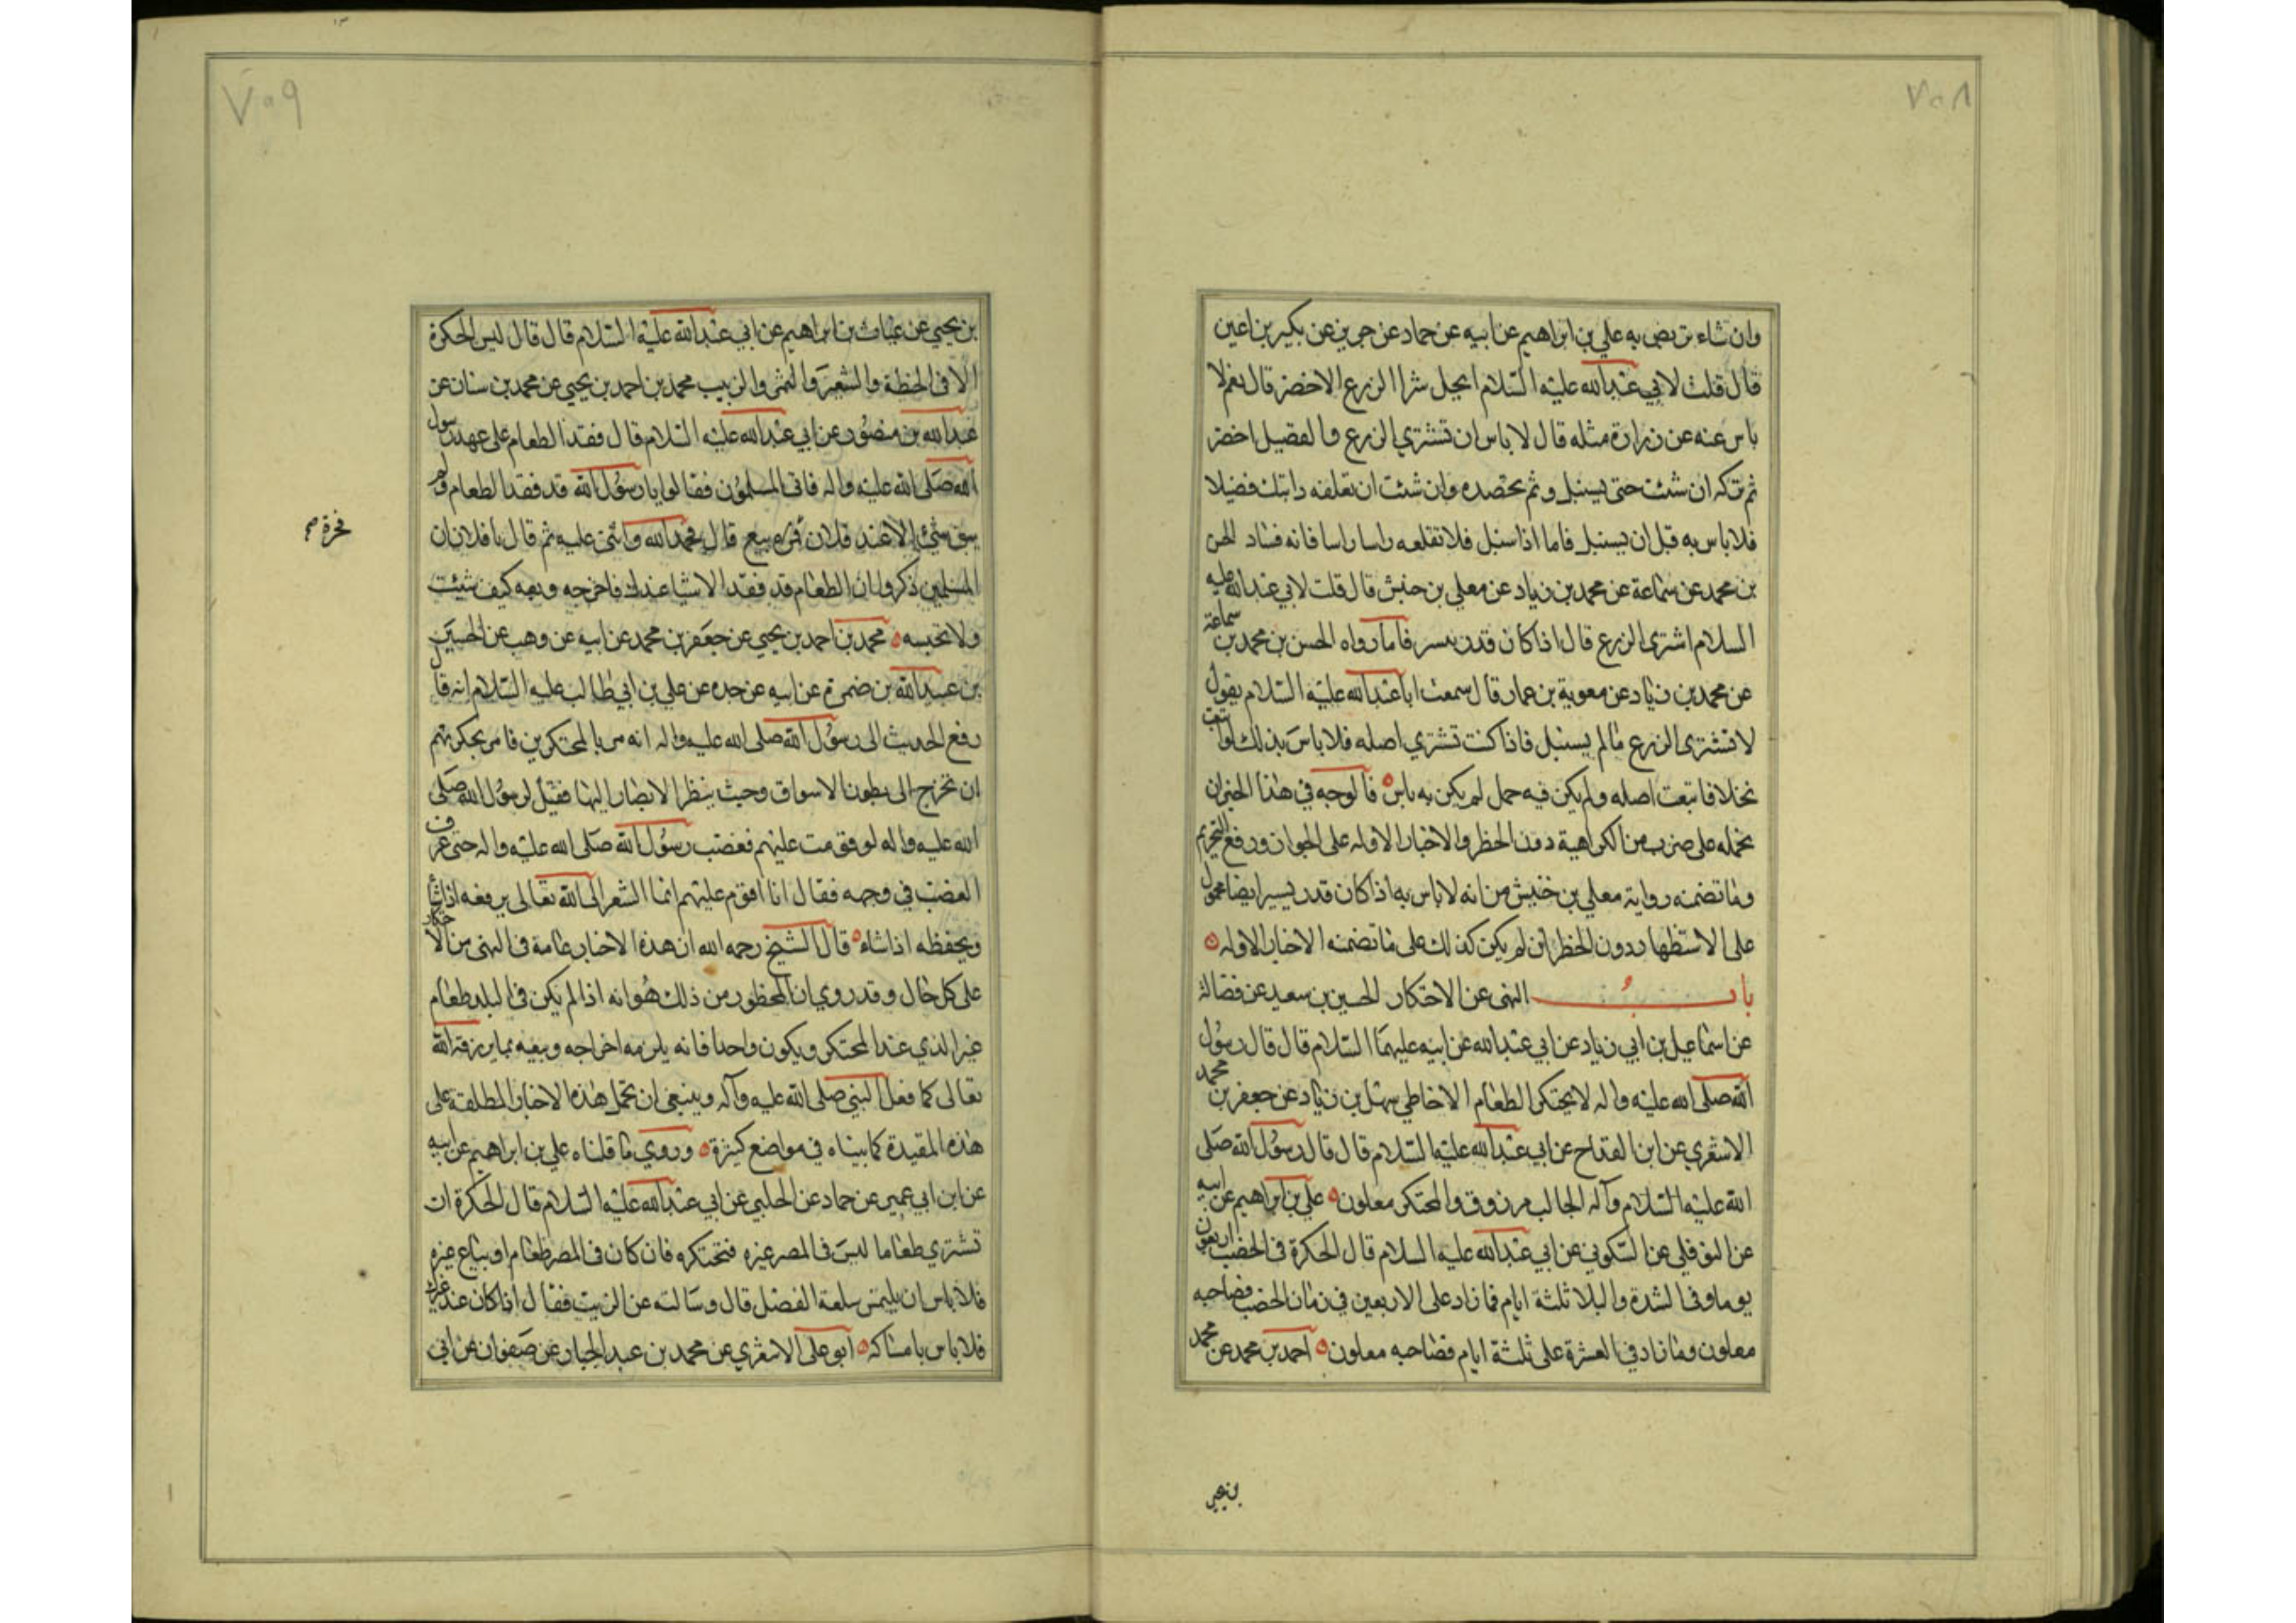 ٧٥٨
وان شاء تربص به علي بن ابراهيم عن ابيه عن حماد عن حريز عن بكير بن اعين
قال قلت لابي عبدالله عليه السلام ايحل شرا الزرع الاخضر قال نعم لا
باس عنه عن زرارة مثله قال لا باس ان تشتري الزرع والقصيل اخضر
ثم تتركه ان شئت حتى يسنبل و ثم تحصده وان شئت ان تعلفه دابتك قصيلا
فلا باس به قبل ان يسنبل فاما اذا سنبل فلا تقلعه راسا راسا فانه فساد الحسن
بن محمد عن سماعة عن محمد بن زياد عن معلى بن خنيس قال قلت لابي عبدالله عليه
السلام اشتري الزرع قال اذا كان قدر يسر فاما رواه الحسن بن محمد بن سماعة
عن محمد بن زياد عن معوية بن عمار قال سمعت ابا عبدالله عليه السلام يقول
لا تشتري الزرع ما لم يسنبل فاذا كنت تشتري اصله فلا باس بذلك او ابتعت
نخلا فابتعت اصله ولم يكن فيه حمل لم يكن به باس فالوجه في هذا الخبر ان
نحمله على ضرب من الكراهية دون الحظر والاخبار الاوله على الجواز ورفع التحريم
وما تضمنه رواية معلى بن خنيس من انه لا باس به اذا كان قدر يسير ايضا محمول
على الاستظهار دون الحظر لن لم يكن كذلك على ما تضمنه الاخبار الاوله
باب النهى عن الاحتكار الحسين بن سعيد عن فضالة
عن اسماعيل بن ابي زياد عن ابي عبدالله عن ابيه عليهما السلام قال قال رسول
الله صلى الله عليه واله لا يحتكر الطعام الا خاطي سهل بن زياد عن جعفر بن محمد
الاشعري عن ابن القداح عن ابي عبدالله عليه السلام قال قال رسول الله صلى
الله عليه السلام وآله الجالب مرزوق والمحتكر معلون علي بن ابراهيم عن ابيه
عن النوفلي عن السكوني عن ابي عبدالله عليه السلام قال الحكرة في الخصب اربعون
يوما وفي الشدة والبلا ثلثة ايام فما زاد على الاربعين في زمان الخصب فصاحبه
معلون وما زاد في العشرة على ثلثة ايام فصاحبه معلون احمد بن محمد عن محمد
بن يحيى
٧٥٩
بن يحيى عن غياث بن ابراهيم عن ابي عبدالله عليه السلام قال قال ليس الحكرة
الا في الحنطة والشعير والتمر والزبيب محمد بن احمد بن يحيى عن محمد بن سنان عن
عبدالله بن منصور عن ابي عبدالله عليه السلام قال فقد الطعام على عهد رسول
الله صلى الله عليه واله فاتى المسلمون فقالوا يا رسول الله قد فقد الطعام ولم
يبق شئ الا عند فلان فمره ببيع قال فحمد الله واثنى عليه ثم قال يا فلان ان
المسلمين ذكروا ان الطعام قد فقد الا شيا عندك فاخرجه وبعه كيف شيئت
ولا تحبسه محمد بن احمد بن يحيى عن جعفر بن محمد عن ابيه عن وهب عن الحسين
بن عبيدالله بن ضمرة عن ابيه عن جده عن علي بن ابي طالب عليه السلام انه قال
رفع الحديث الى رسول الله صلى الله عليه واله انه مر بالمحتكرين فامر بحكرتهم
ان تخرج الى بطون الاسواق وحيث ينظر الابصار اليها فقيل لرسول الله صلى
الله عليه واله لو قومت عليهم فغضب رسول الله صلى الله عليه واله حتى عرف
الغضب في وجهه فقال انا اقوم عليهم انما الشعر الى الله تعالى يرفعه اذا شا
ويحفظه اذا شاء قال الشيخ رحمه الله ان هذه الاخبار عامة في النهى من الاحتكار
على كل حال وقد روي ان المحظور من ذلك هو انه اذا لم يكن في البلد طعام
غير الذي عند المحتكر ويكون واحدا فانه يلزمه اخراجه وبيعه بما يرزقه الله
تعالى كما فعل النبي صلى الله عليه وآله وينبغي ان تحمل هذه الاخبار المطلقة على
هذه المقيدة كما بيناه في مواضع كثيرة وروي ما قلناه علي بن ابراهيم عن ابيه
عن ابن ابي عمير عن حماد عن الحلبي عن ابي عبدالله عليه السلام قال الحكرة ان
تشتري طعاما ليس في المصر غيره فتحتكره فان كان في المصر طعام او يباع غيره
فلا باس ان يلتمس سلعة الفضل قال وسالته عن الزيت فقال اذا كان عند غيرك
فلا باس بامساكه ابو على الاشعري عن محمد بن عبد الجبار عن صفوان عن ابي